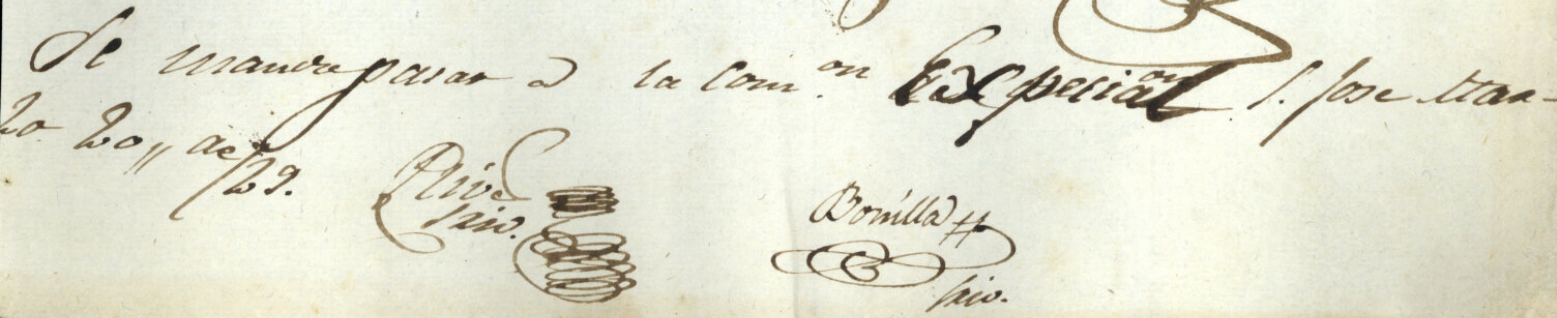 Se mando pasar à la com.on Especial S. Jose Mar-
zo 20,, de /29.
Srio.
Bonilla
Srio.